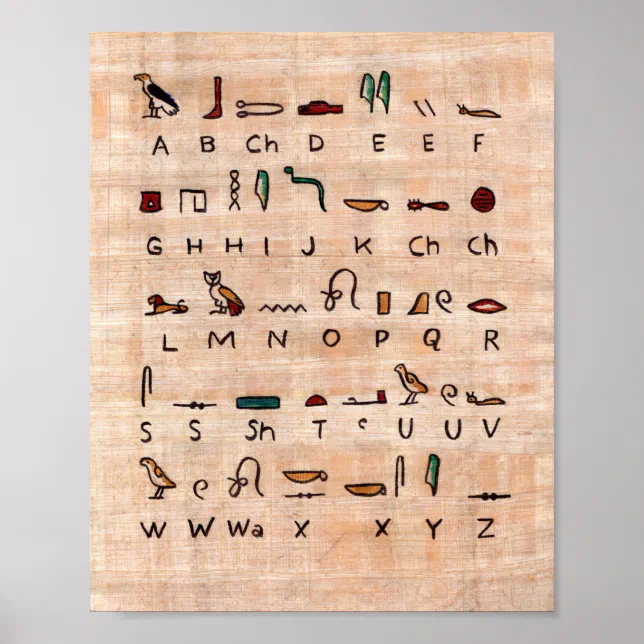 A B Ch D E E F
G H H I J K Ch Ch
L M N O P Q R
S S Sh T ᶜ U U V
W W Wa X X Y Z